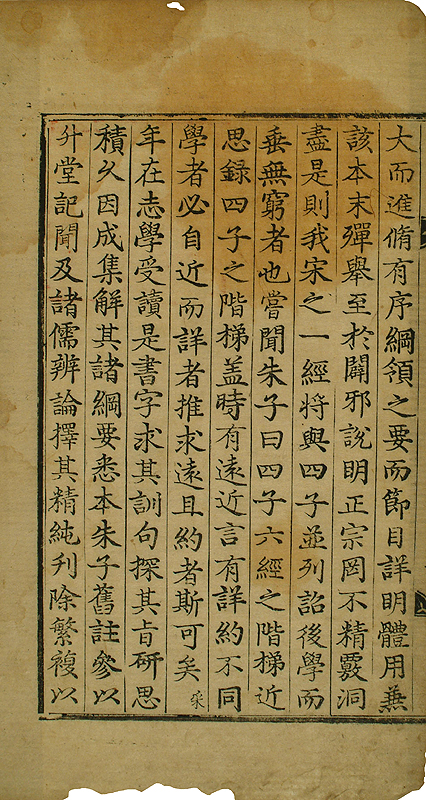 大而進脩有序綱領之要而節目詳明體用兼
該本末殫舉至於闢邪說明正宗罔不精覈洞
盡是則我宋之一經將與四子並列詔後學而
垂無窮者也嘗聞朱子曰四子六經之階梯近
思録四子之階梯盖時有遠近言有詳約不同
學者必自近而詳者推求遠且約者斯可矣采
年在志學受讀是書字求其訓句探其旨研思
積久因成集解其諸綱要悉本朱子舊註參以
升堂記聞及諸儒辨論擇其精純刋除繁複以